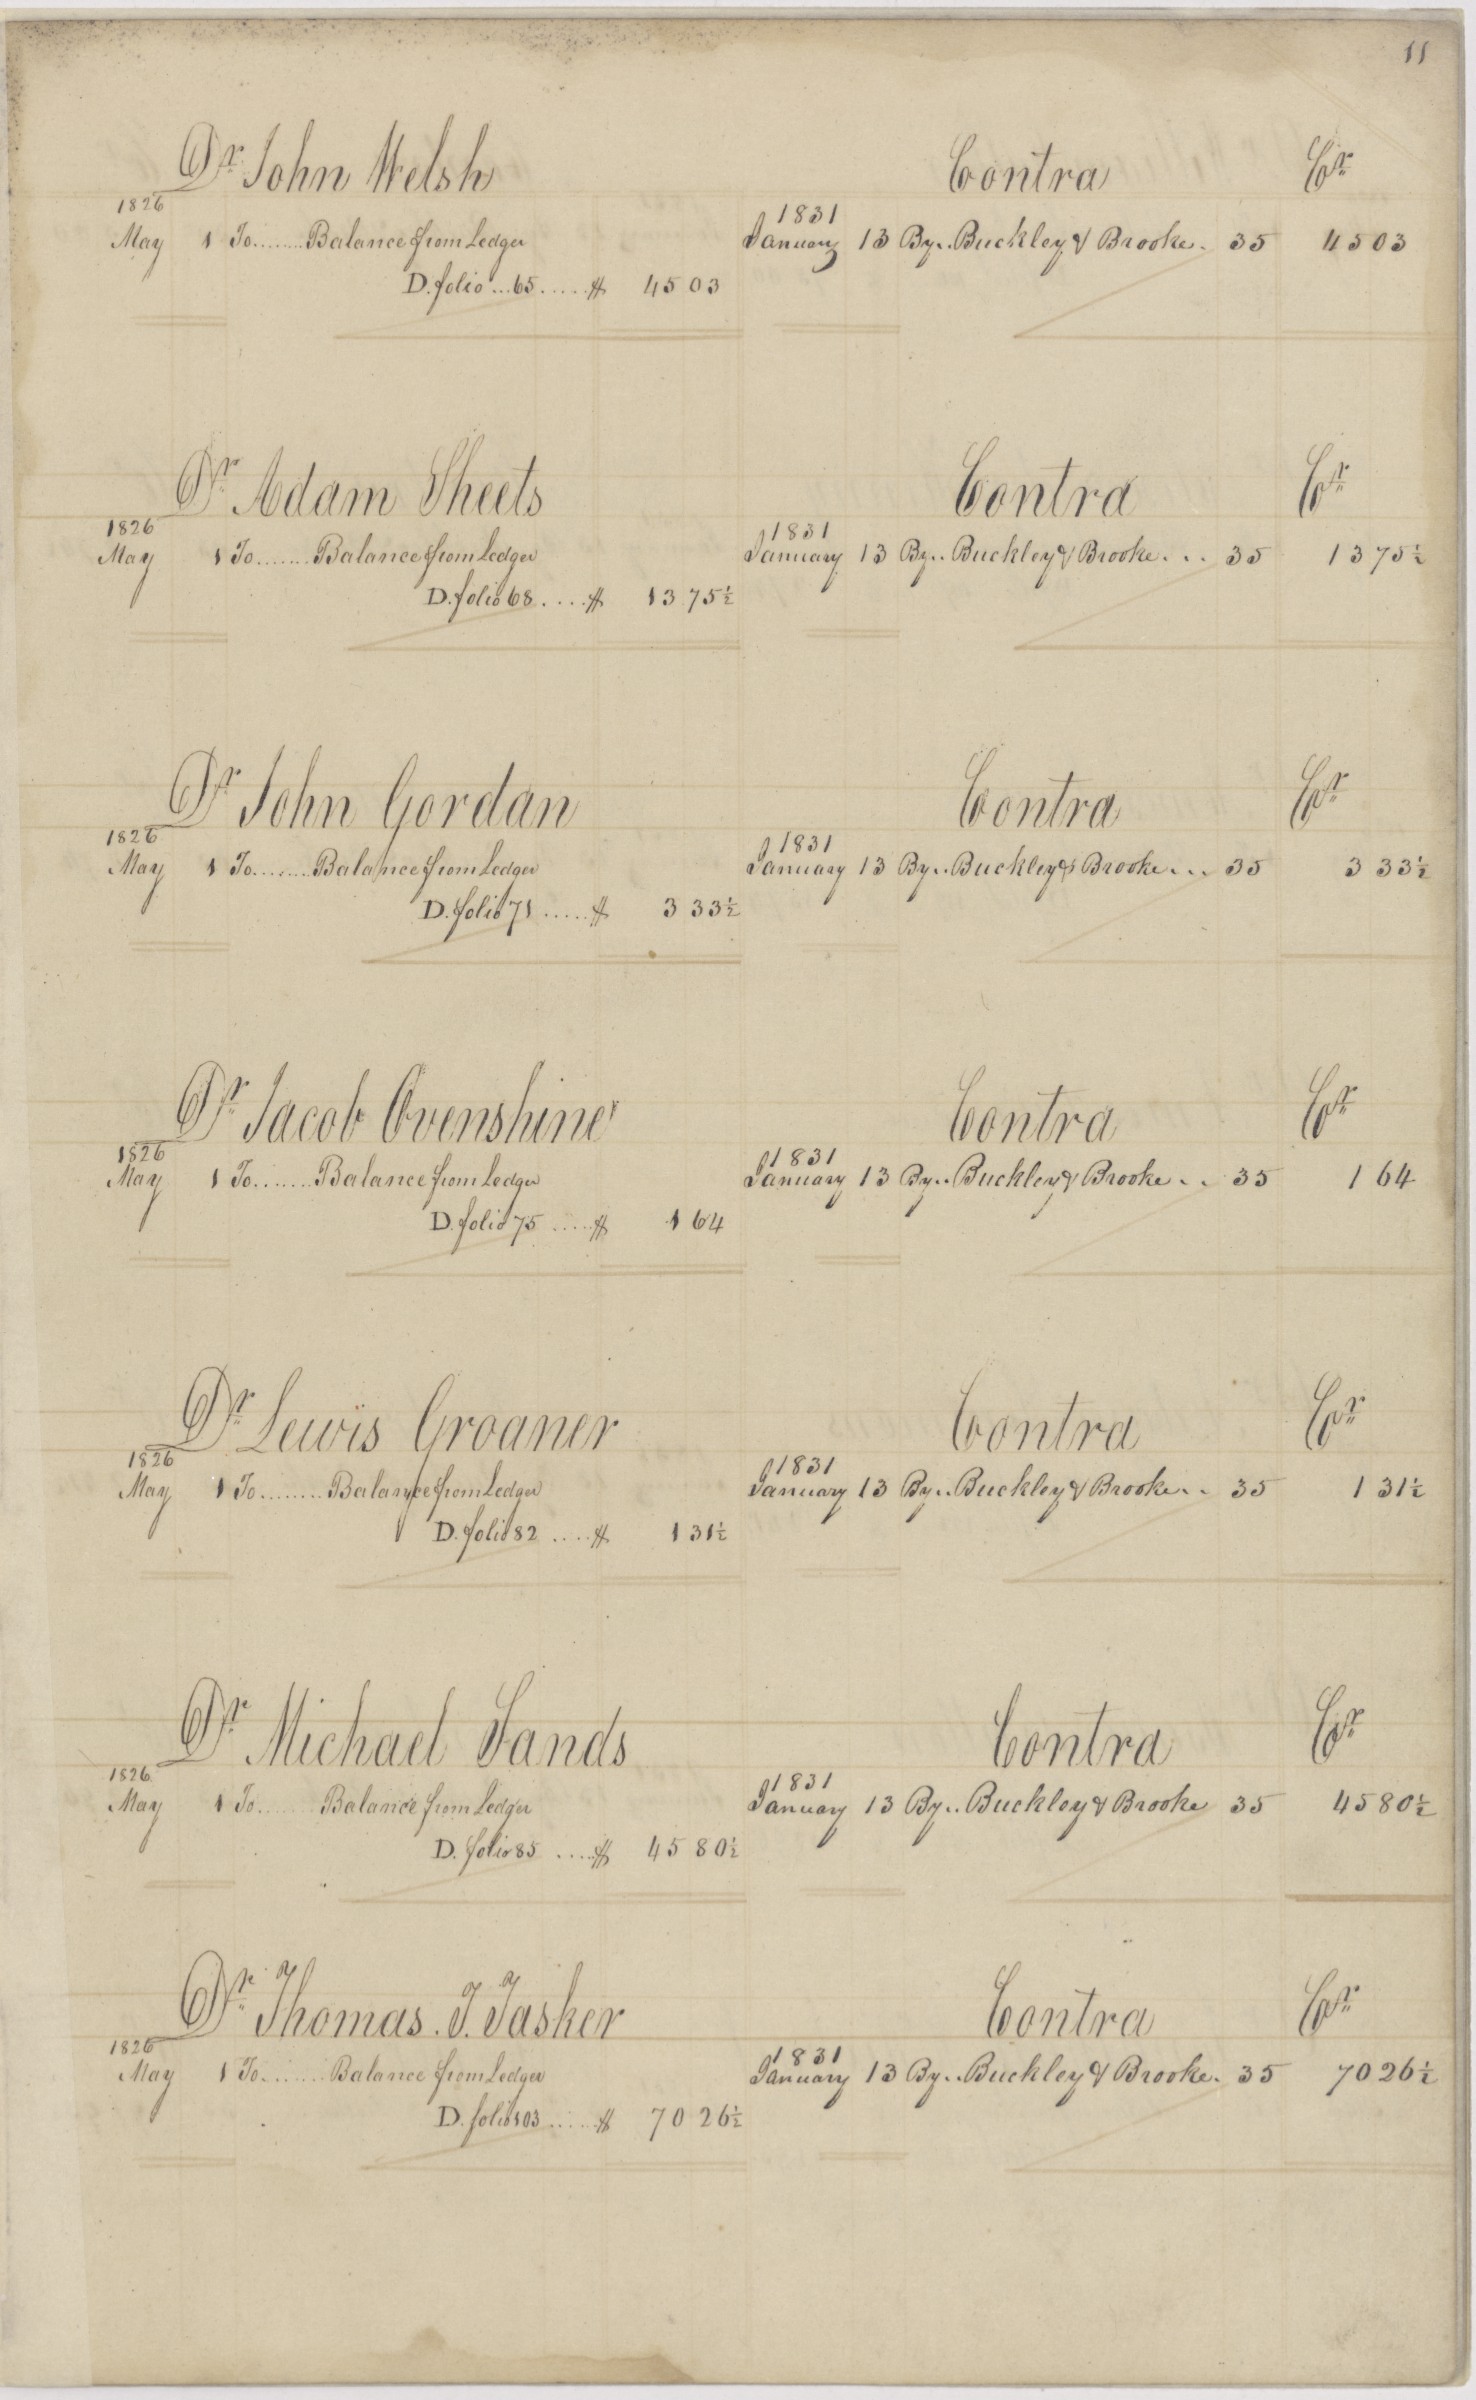 11
Dr. John Welsh Contra Cr.
1826 1831
May 1 To........Balance from Ledger January 13 By..Buckley & Brooke. 35 45 03
D. folio...65.....$ 45 03
Dr. Adam Sheets Contra Cr.
1826 1831
May 1 To........Balance from Ledger January 13 By..Buckley & Brooke... 35 13 75½
D. folio 68....$ 13 75½
Dr. John Gordan Contra Cr.
1826 1831
May 1 To........Balance from Ledger January 13 By..Buckley & Brooke... 35 3 33½
D. folio 71.....$ 3 33½
Dr. Jacob Ovenshine Contra Cr.
1826 1831
May 1 To.......Balance from Ledger January 13 By..Buckley & Brooke.. 35 1 64
D. folio 75.....$ 1 64
Dr. Lewis Groaner Contra Cr.
1826 1831
May 1 To........Balance from Ledger January 13 By..Buckley & Brooke.. 35 1 31½
D. folio 82....$ 1 31½
Dr. Michael Sands Contra Cr.
1826 1831
May 1 To.......Balance from Ledger January 13 By..Buckley & Brooke 35 45 80½
D. folio 85....$ 45 80½
Dr. Thomas. T. Tasker Contra Cr.
1826 1831
May 1 To........Balance from Ledger January 13 By..Buckley & Brooke. 35 70 26½
D. folio 103......$ 70 26½